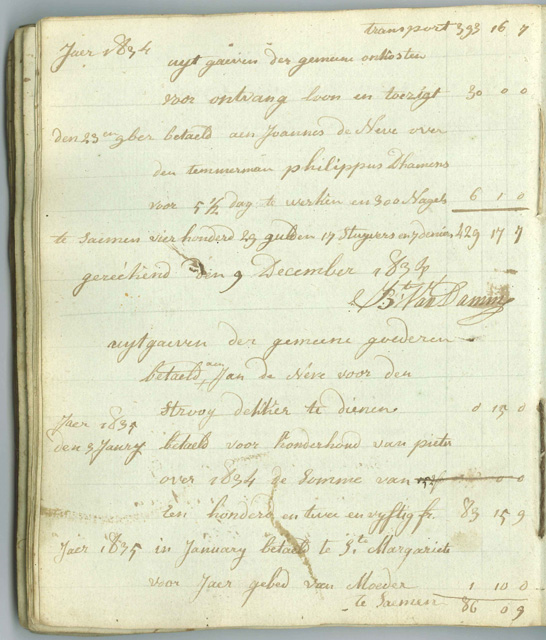 transport 393 16 7
Jaer 1834 uyt gaeven der gemeene onkosten
voor ontvang loon en toezigt 30 0 0
den 23en 9ber betaeld aen Joannes de Neve over
den temmerman philippus Dhamens
voor 5 1/2 dag te werken en 300 Nagels 6 1 0
te saemen vier honderd 29 gulden 17 Stuyvers en 7 deniers 429 17 7
gereekend den 9 December 1834
Van Damme
uytgaeven der gemeene goederen
betaeld aen Jan de Neve voor den
Strooy dekker te dienen 0 15 0
Jaer 1835
den 3 Jaury betaeld voor t'onderhoud van pieter
over 1834 de Somme van
Een honderd en twee en vyftig fr. 83 15 9
Jaer 1835 in January betaeld te St. Margariete
voor Jaer gebed van Moeder 1 10 0
te Saemen 86 0 9